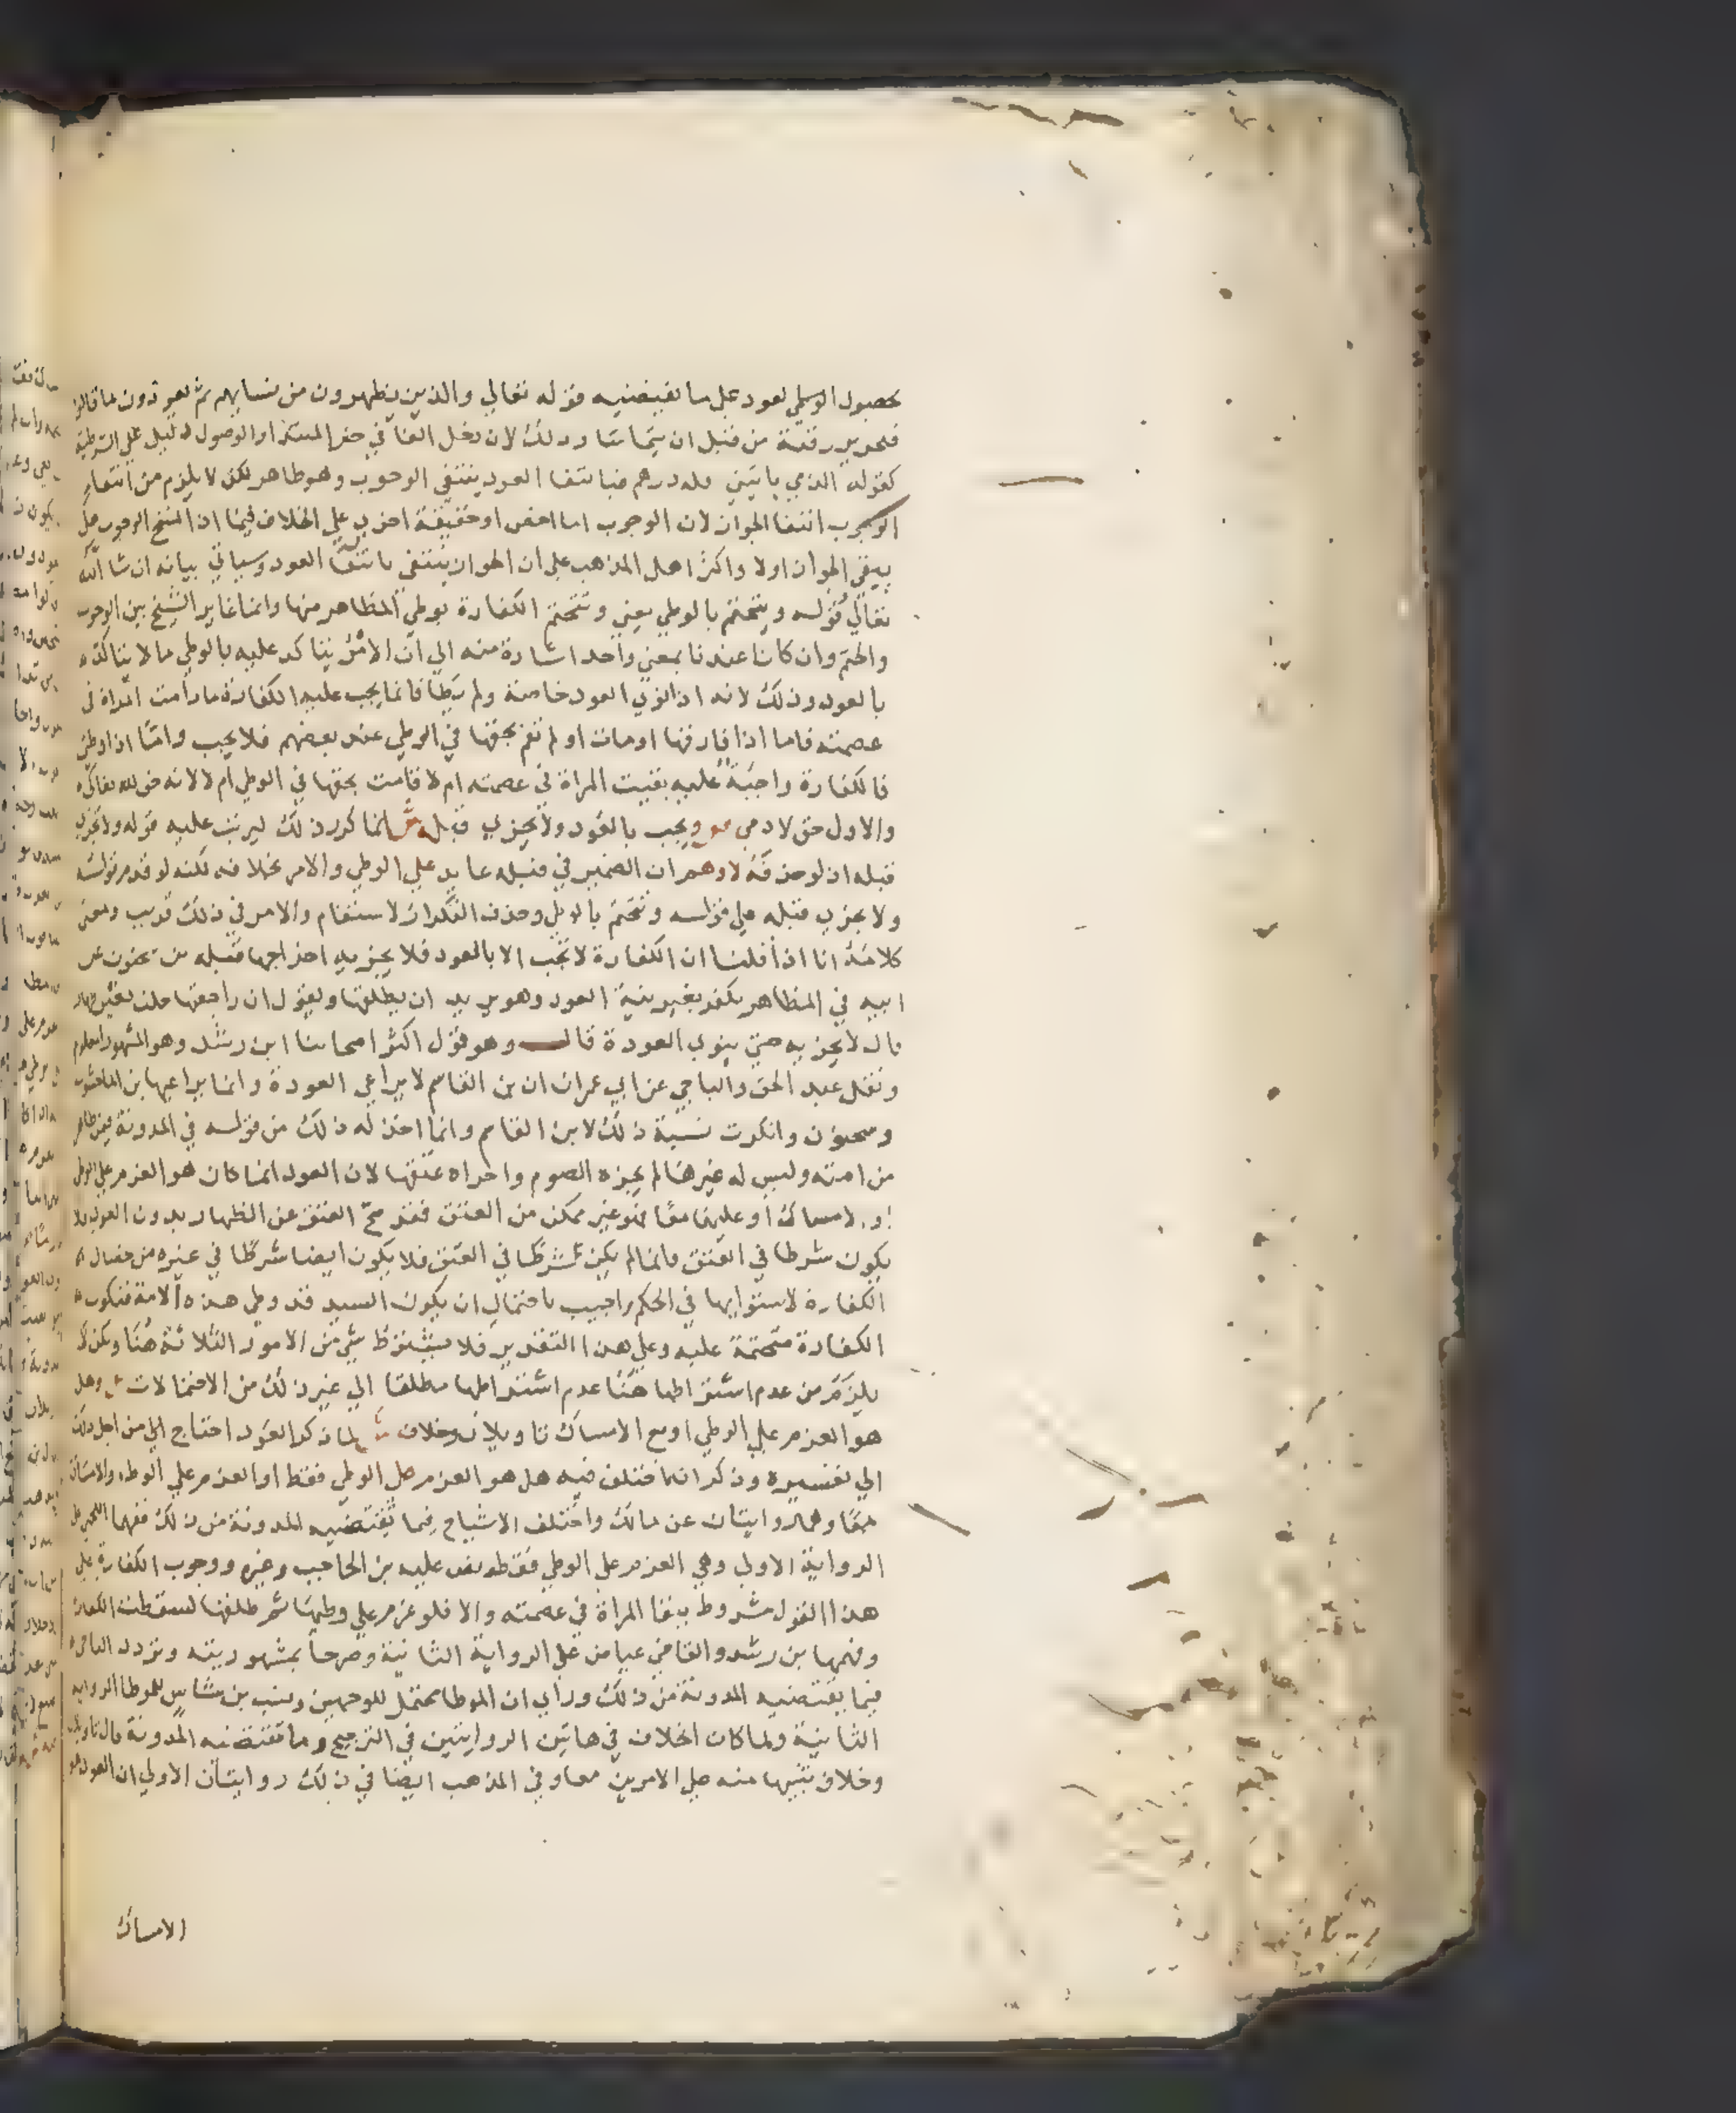 بحصول الوطي لعود على ما تقتضيه قوله تعالي والذين يظهرون من نسايهم ثم يعودون لما قالوا
فتحرير رقبة من قبل ان يتماسا وذلك لان دخل الفا في خبر المبتدا والوصول دليل علي الشرطية
كقوله الذي ياتيني فله درهم فبانتفا العود ينتفي الوجوب وهو ظاهر لكن لا يلزم من انتفاء
الوجوب انتفا الجواز لان الوجوب اما اخص او حقيقة اخري علي الخلاف فيما اذا نسخ الوجوب هل
يبقي الجواز اولا واكثر اهل المذهب علي ان الجواز ينتفي بانتفا العود وسياتي بيانه ان شا الله
تعالي قوله ويتحتم بالوطي يعني وتتحتم الكفارة بوطي المظاهر منها وانما غاير الشيخ بين الوجوب
والحتم وان كانا عندنا بمعني واحد اشارة منه الي ان الامر يتاكد عليه بالوطي ما لا يتاكد
بالعود وذلك لانه اذا نوي العود خاصة ولم يطا فانما يجب عليه الكفارة ما دامت المراة في
عصمته فاما اذا فارقها او مات او لم تقم بحقها في الوطي عند بعضهم فلا يجب واما اذا وطي
فالكفارة واجبة عليه بقيت المراة في عصمته ام لا قامت بحقها في الوطي ام لا لانه حق لله تعالي
والاول حق لادمي ويجب بالعود ولا يجزي قبله ش انما كرر ذلك ليرتب عليه قوله ولا تجزي
قبله اذ لو حذفه لاوهم ان الضمير في قبله عايد علي الوطي والامر بخلافه لكنه لو قدم قوله
ولا يجزي قبله علي قوله وتتحتم بالوطي وحذف التكرار لاستقام والامر في ذلك قريب ومعني
كلامه انا اذا قلنا ان الكفارة لا تجب الا بالعود فلا يجزيه اخراجها قبله من سحنون عن
ابيه في المظاهر يكفر بغير نية العود وهو يريد ان يطلقها ويقول ان راجعتها حلت بغير ظهار
قال لا يجزيه حتي ينوي العودة قال وهو قول اكثر اصحابنا ابن رشد وهو المشهور المعلوم
ونقل عبد الحق والباجي عن ابي عمران ان بن القاسم لا يراعي العودة وانما يراعيها بن الماجشون
وسحنون وانكرت نسبة ذلك لابن القاسم وانما اخذ له ذلك من قوله في المدونة فيمن ظاهر
من امته وليس له غيرها لم يجزه الصوم واجزاه عتقها لان العود انما كان هو العزم علي الوطي
او الامساك او عليهما معا فهو غير ممكن من العتق فقد صح العتق عن الظهار بدون العود فلا
يكون شرطا في العتق وانما لم يكن شرطا في العتق فلا يكون ايضا شرطا في غيره من خصال
الكفارة لاستوايها في الحكم واجيب باحتمال ان يكون السيد قد وطي هذه الامة فتكون
الكفارة متحتمة عليه وعلي هذا التقدير فلا يشترط شي من الامور الثلاثة هنا ولكن لا
يلزم من عدم اشتراطها هنا عدم اشتراطها مطلقا الي غير ذلك من الاحتمالات ص وهل
هو العزم علي الوطي او مع الامساك تاويلان وخلاف ش لما ذكر العود احتاج الي من اجل ذلك
الي تفسيره وذكر انه اختلف فيه هل هو العزم علي الوطي فقط او العزم علي الوطء والامساك
معا وهما روايتان عن مالك واختلف الاشياخ فيما تقتضيه المدونة من ذلك ففهمها اللخمي علي
الرواية الاولي وهي العزم علي الوطي فقط ونص عليه بن الحاجب وغيره ووجوب الكفارة علي
هذا القول مشروط ببقا المراة في عصمته والا فلو عزم علي وطيها ثم طلقها لسقطت الكفارة
وفهمها بن رشد والقاضي عياض علي الرواية الثانية وصرحا بمشهوريته وتردد الباجي
فيما يقتضيه المدونة من ذلك وراي ان الموطا محتمل للوجهين ونسب بن شاس للموطا الرواية
الثانية ولما كان الخلاف في هاتين الروايتين في الترجيح وما تقتضيه المدونة قال تاويلان
وخلاف تنبيها منه علي الامرين معا وفي المذهب ايضا في ذلك روايتان الاولي ان العود هو
الامساك